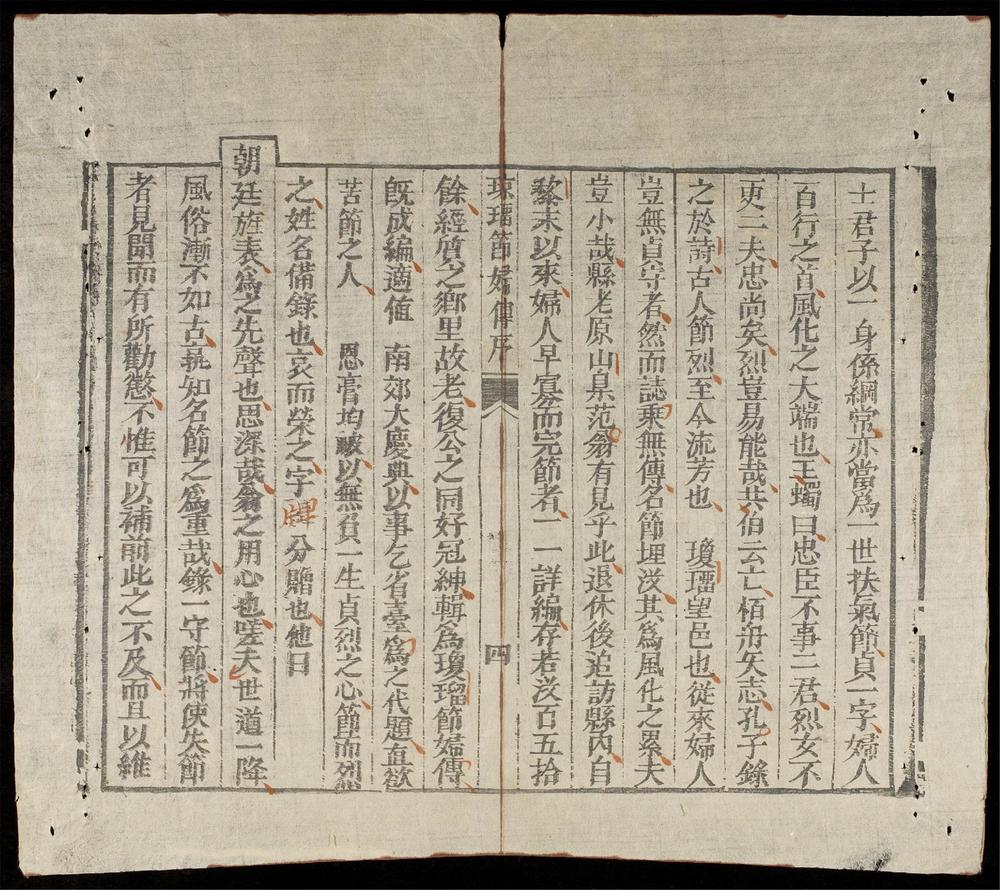 士君子以一身係綱常亦當爲一世扶氣節貞一字婦人
百行之首風化之大端也王蠋曰忠臣不事二君烈女不
更二夫忠尚矣烈豈易能哉共伯云亡栢舟矢志孔子錄
之於詩古人節烈至今流芳也 瓊瑠望邑也從來婦人
豈無貞守者然而誌乗無傳名節埋沒其爲風化之累夫
豈小哉縣老原山臬范翁有見乎此退休後追訪縣內自
黎末以來婦人早寡而完節者一一詳編存若沒百五拾
琼瑠節婦傳序 四
餘經質之鄉里故老復公之同好冠紳輯爲瓊瑠節婦傳
旣成編適值 南郊大慶典以事乞省臺爲之代題直欲
苦節之人 恩膏均皷以無負一生貞烈之心節而烈
之姓名備錄也哀而榮之字牌分贍也他日
朝廷旌表爲之先聲也思深哉翁之用心也嗟夫世道一降
風俗漸不如古孰知名節之爲重哉錄一守節將使失節
者見聞而有所勸懲不惟可以補前此之不及而且以維